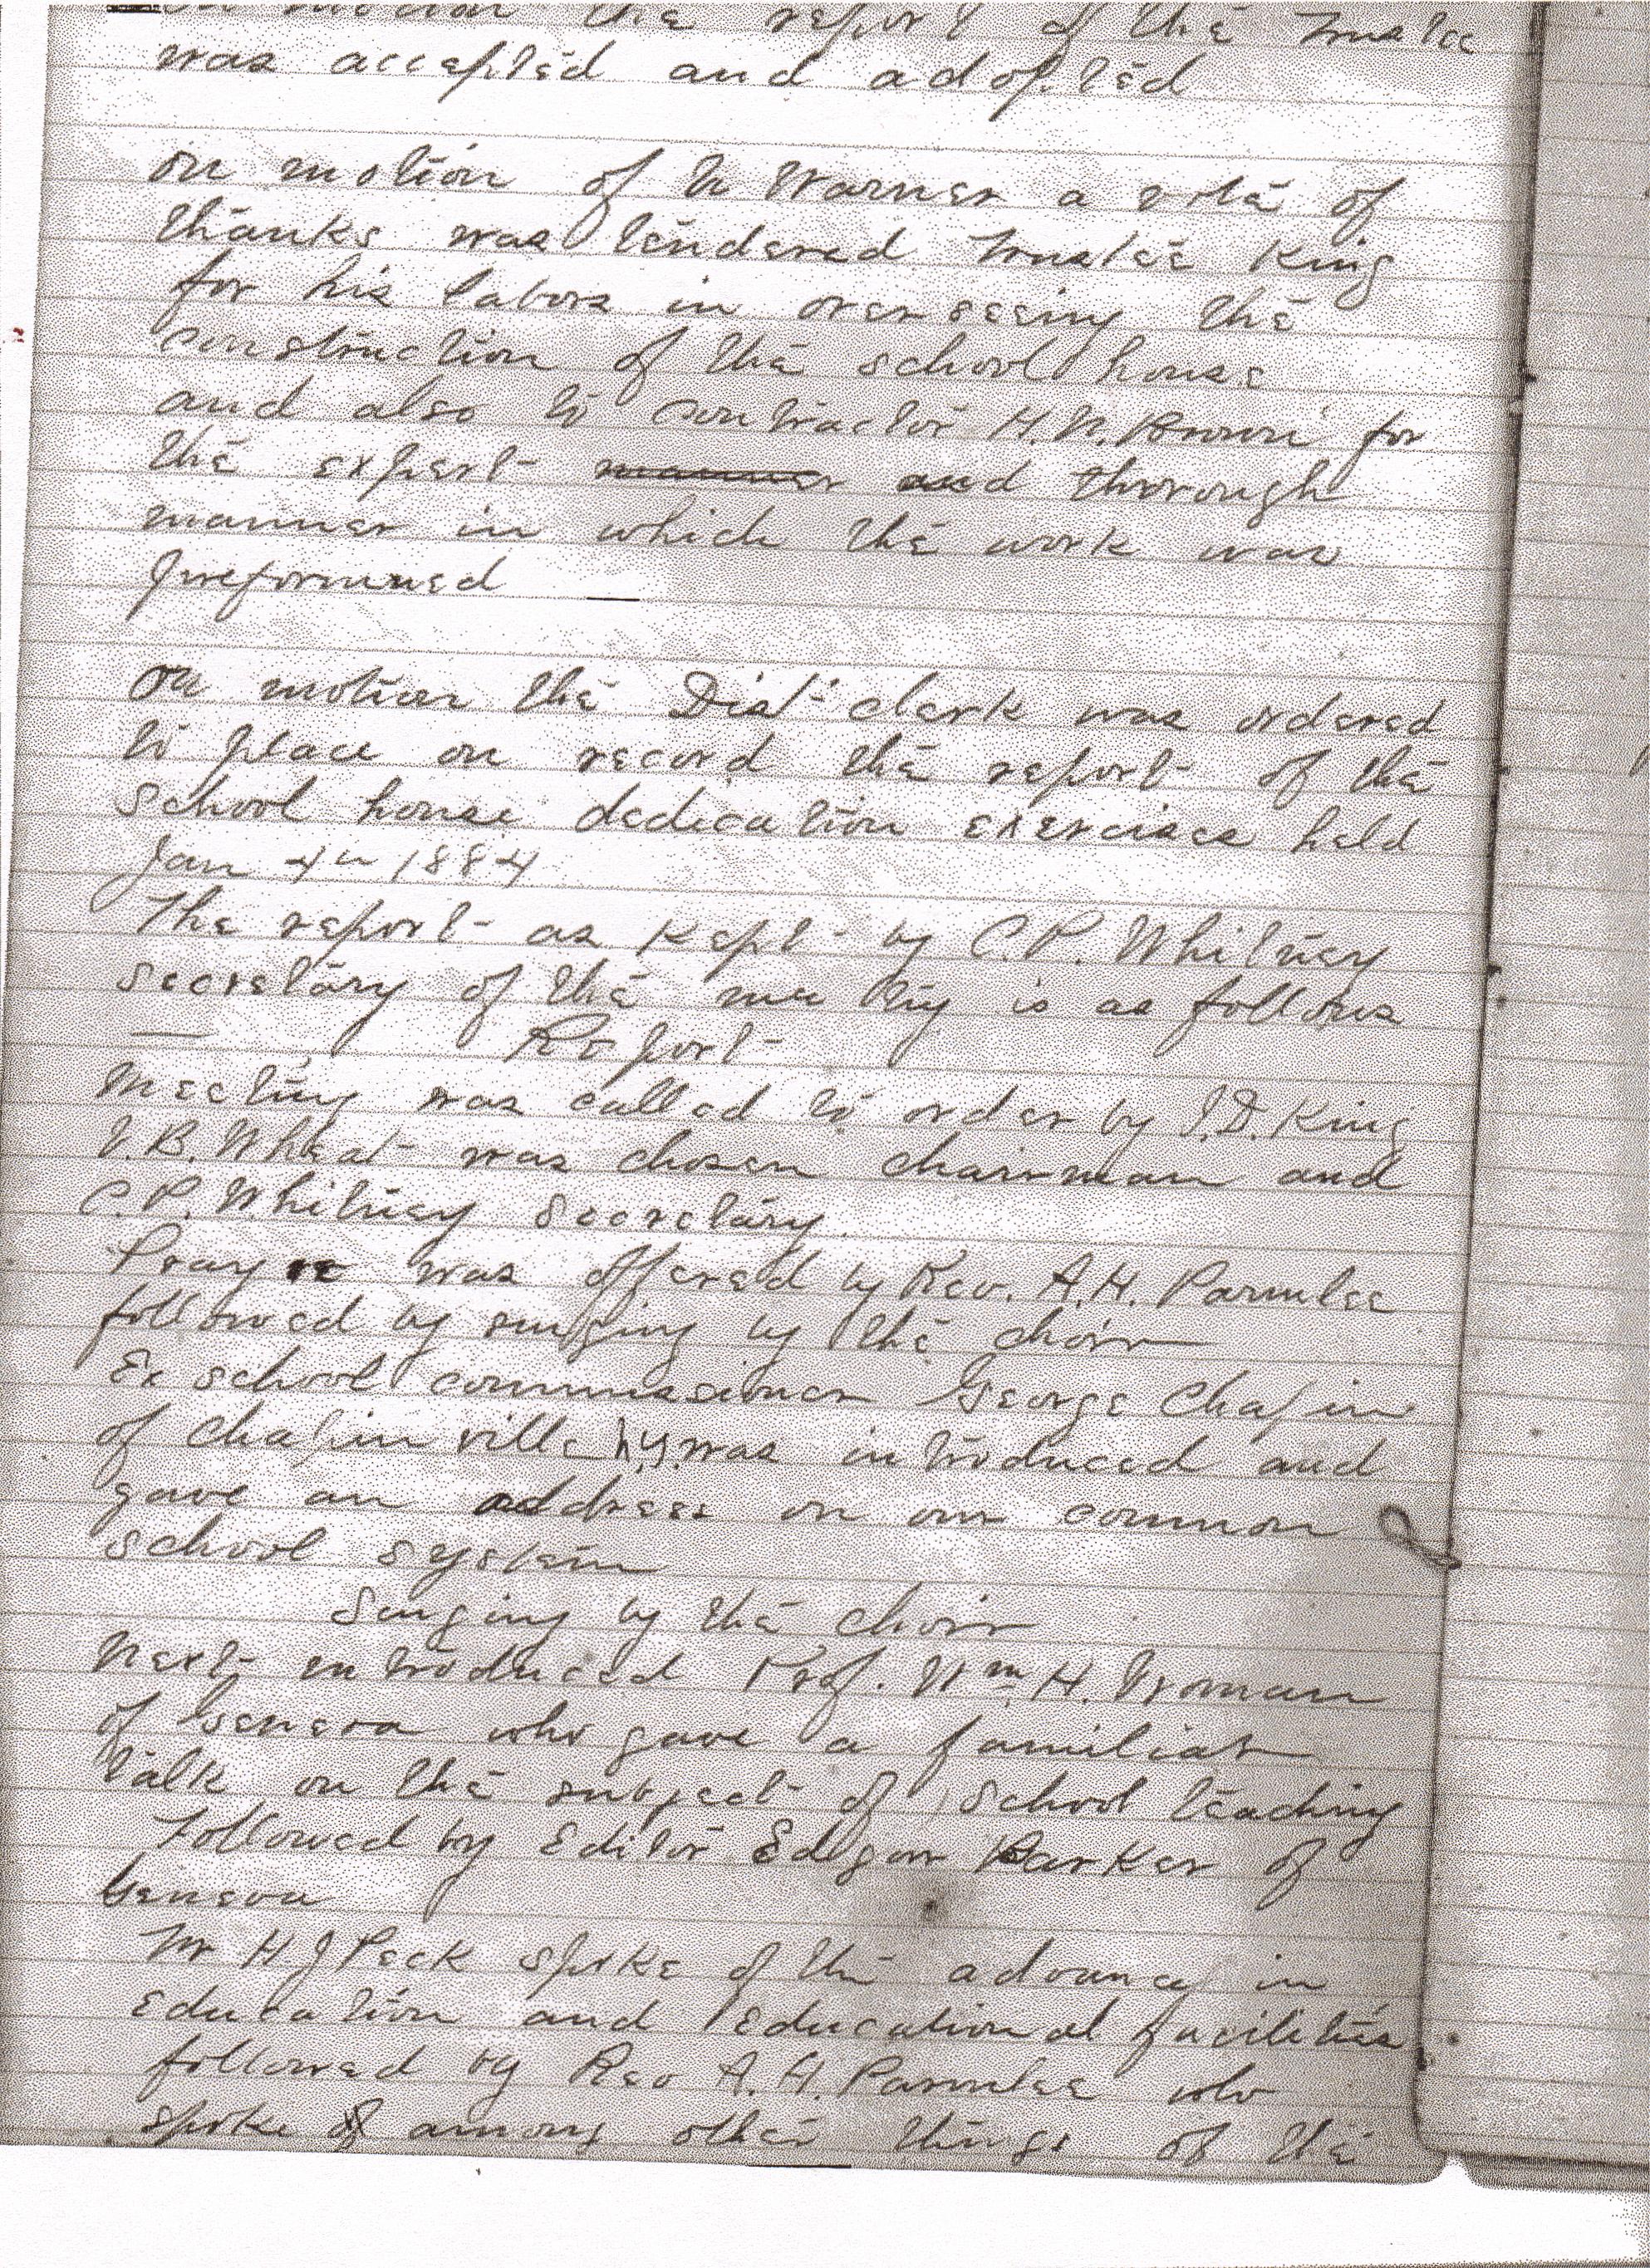 On motion the report of the Trustee
was accepted and adopted
On motion of N Warner a vote of
thanks was tendered Trustee King
for his labors in overseeing the
construction of the school house
and also to contractor H. N. Brown for
the expert manner and thorough
manner in which the work was
preformed —
On motion the Dist clerk was ordered
to place on record the report of the
School house dedication exercises held
Jan 4th 1884
The report as kept by C. P. Whitney
secretary of the meeting is as follows
— Report
Meeting was called to order by I. D. King
I. B. Wheat was chosen chairman and
C. P. Whitney Secretary.
Prayer was offered by Rev. A. H. Parmlee
followed by singing by the choir
Ex School commissioner George Chapin
of Chapin ville N.Y. was introduced and
gave an address on our common
School system
Singing by the choir
Next introduced Prof. Wm H. Vroman
of Geneva who gave a familiar
talk on the subject of School teaching
Followed by Editor Edgar Parker of
Geneva
Mr H J Peck spoke of the advance in
Education and Educational facilities
followed by Rev A. H. Parmlee who
spoke of among other things of the